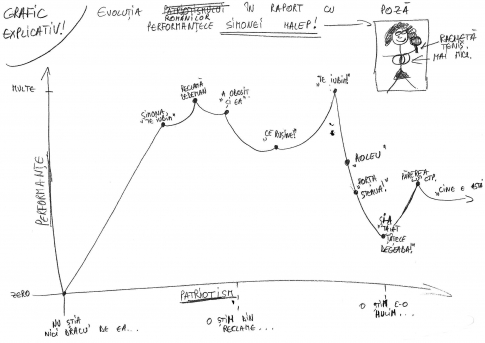 GRAFIC
EXPLICATIV!
EVOLUȚIA PATRIOTISMULUI ROMÂNILOR ÎN RAPORT CU
PERFORMANȚELE SIMONEI HALEP!
POZĂ
RACHETĂ
TENIS.
MAI MICĂ.
MULTE
PERFORMANȚE
ZERO
SIMONA
"TE IUBIM"
RECLAMĂ
DEDEMAN
A OBOSIT
ȘI EA"
"CE RUȘINE!"
"TE IUBIM!"
"AOLEU"
"FORȚA
STEAUA!"
ȘI-A
TĂIAT
ȚÂȚELE
DEGEABA!"
PĂREREA
CTP.
"CINE E ASTA
PATRIOTISM
NU ȘTIA
NICI DRACU' DE EA...
O ȘTIM DIN
RECLAME...
O ȘTIM E-O